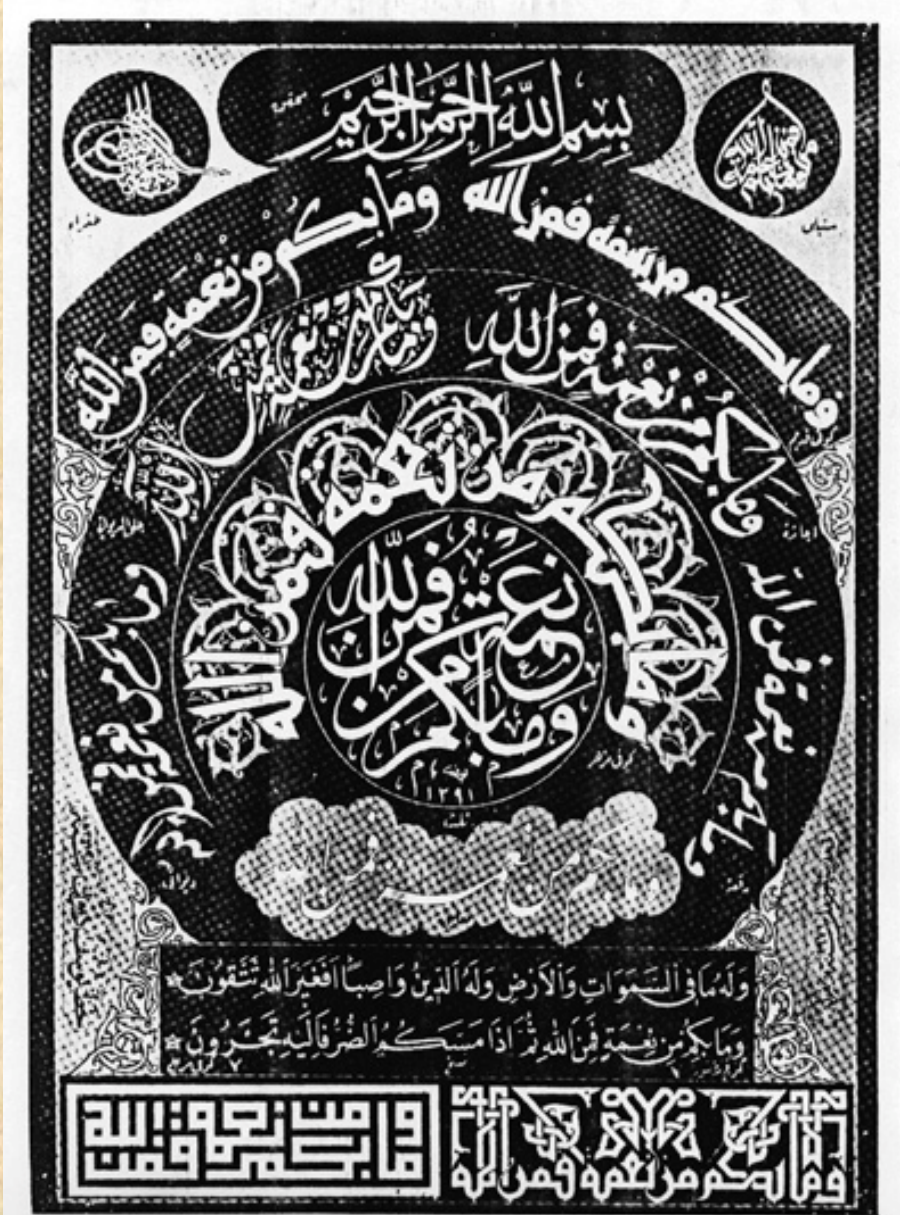 بِسْمِ اللَّهِ الرَّحْمَنِ الرَّحِيمِ
طغراء
سنبلي
وما بكم من نعمة فمن الله
وَمَا بِكُم مِّن نِعْمَةٍ فَمِنَ اللَّه
وَمَا بِكُم مِّن نِعْمَةٍ فَمِنَ اللَّهِ
إجازة
وما بكم من نعمة فمن الله
جلي الديواني
وما بكم من نعمة فمن الله
وما بكم من نعمة فمن الله
رقعة
وما بكم من نعمة فمن الله
ديواني
وما بكم من نعمة فمن الله
١٣٩١
وما بكم من نعمة فمن الله
وَلَهُ مَا فِي السَّمَوَاتِ وَالْأَرْضِ وَلَهُ الدِّينُ وَاصِبًا أَفَغَيْرَ اللَّهِ تَتَّقُونَ
وَمَا بِكُمْ مِنْ نِعْمَةٍ فَمِنَ اللَّهِ ثُمَّ إِذَا مَسَّكُمُ الضُّرُّ فَإِلَيْهِ تَجْأَرُونَ
وما بكم من نعمة فمن الله
وما بكم من نعمة فمن الله